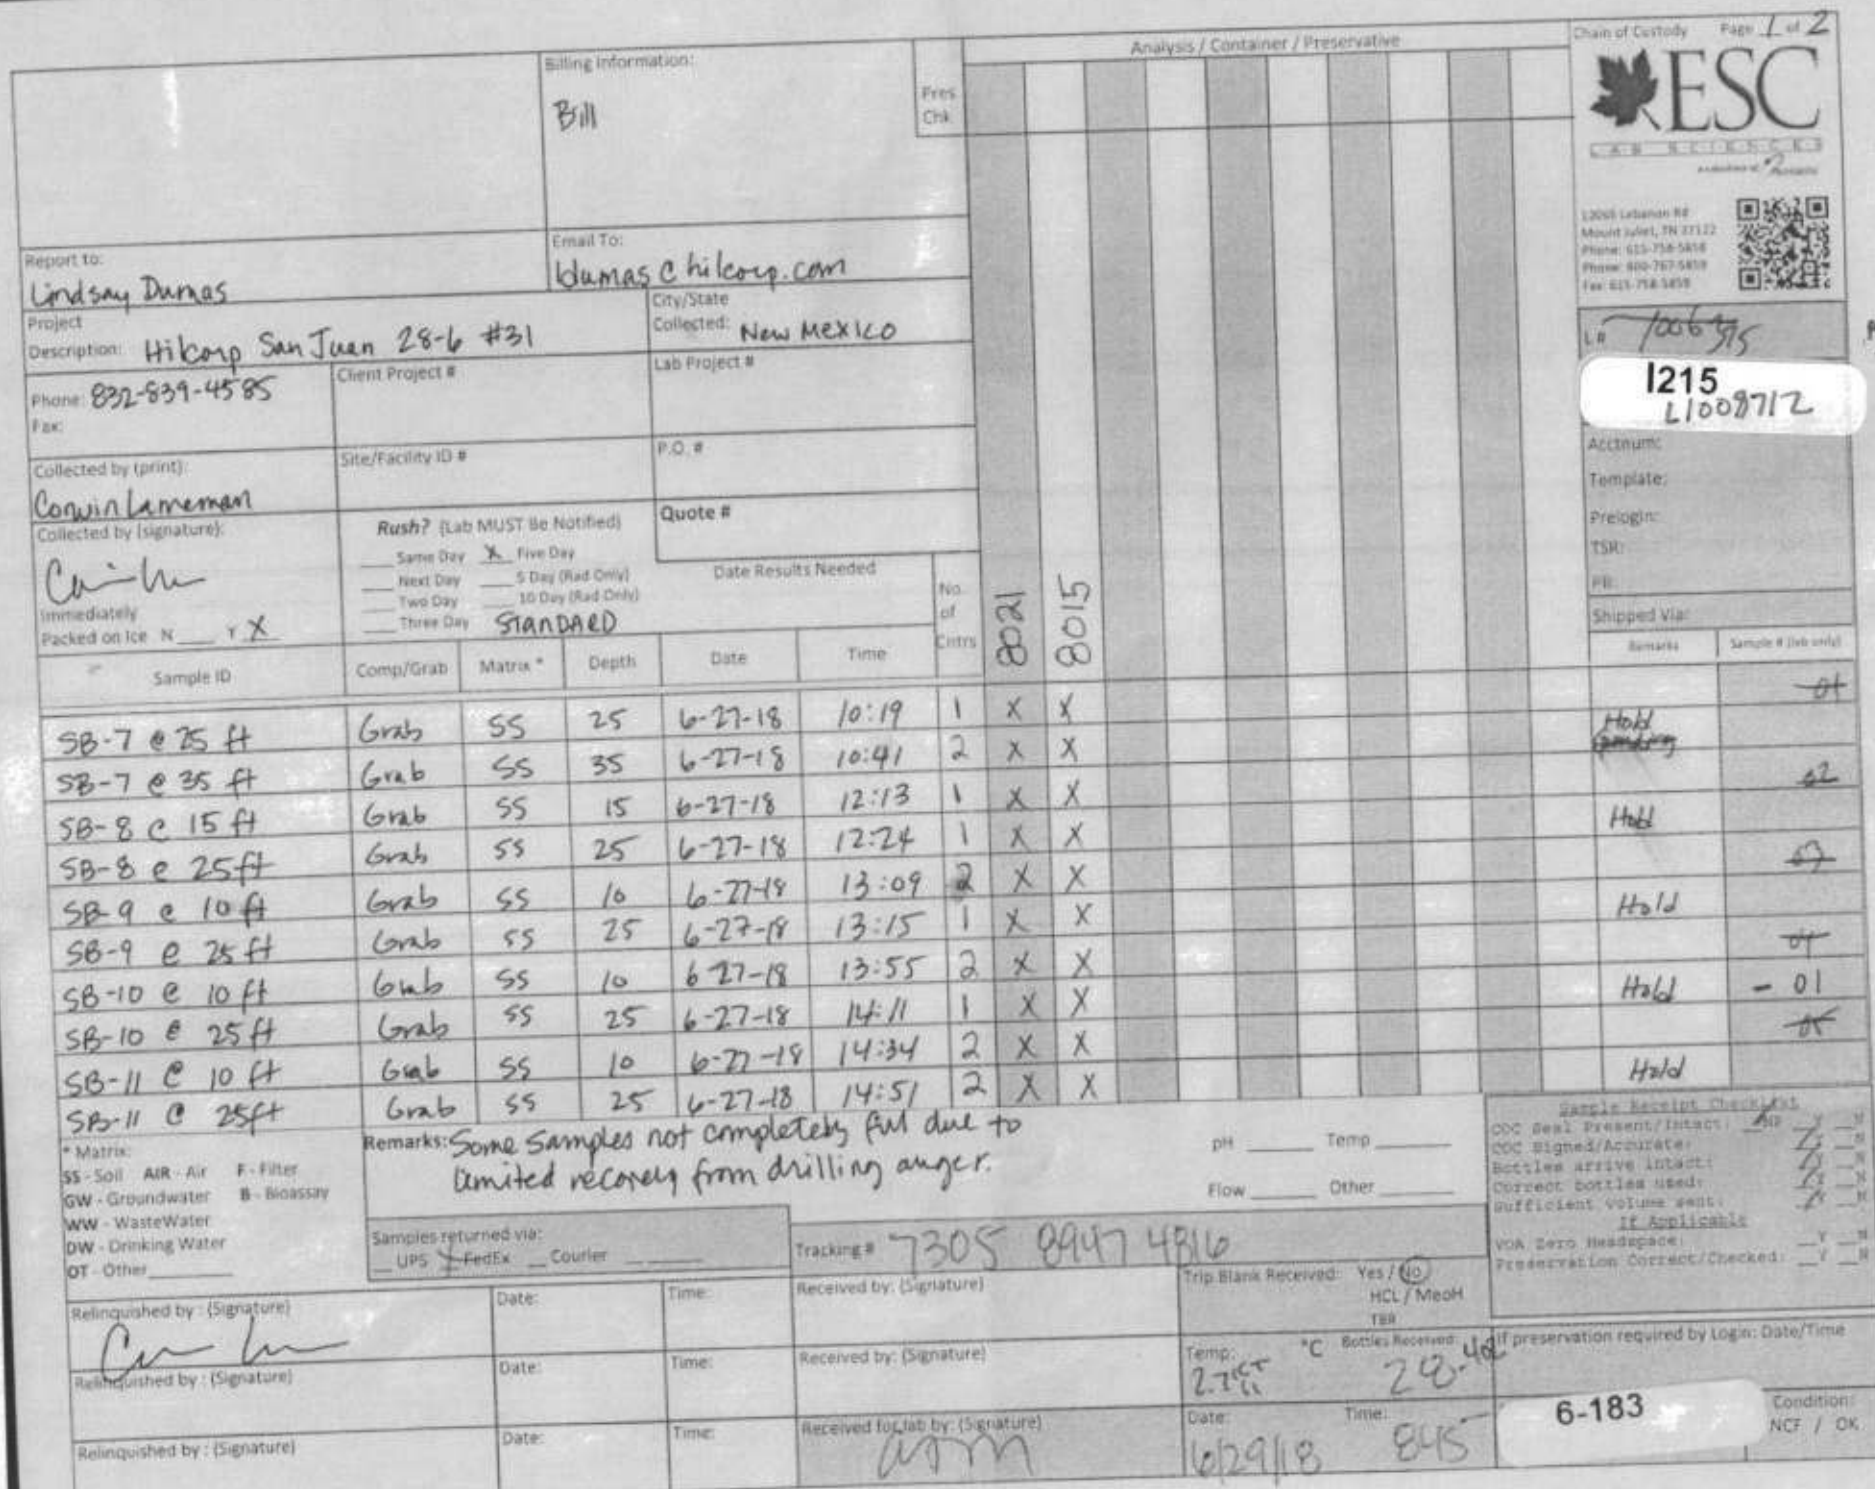 Chain of Custody Page 1 of 2
Analysis / Container / Preservative
Billing Information:
Bill
Pres
Chk
ESC
LAB SCIENCES
12065 Lebanon Rd
Mount Juliet, TN 37122
Phone: 615-758-5858
Phone: 800-767-5859
Fax: 615-758-5859
Report to:
Lindsay Dumas
Email To:
ldumas@hilcorp.com
Project
Description: Hilcorp San Juan 28-6 #31
City/State
Collected: New Mexico
L#
1215
L1008712
Phone: 832-839-4585
Fax:
Client Project #
Lab Project #
Collected by (print):
Corwin Lameman
Site/Facility ID #
P.O. #
Acctnum:
Template:
Prelogin:
TSR:
PB:
Shipped Via:
Collected by (signature):
Rush? (Lab MUST Be Notified)
Quote #
Same Day X Five Day
Next Day 5 Day (Rad Only)
Two Day 10 Day (Rad Only)
Three Day STANDARD
Date Results Needed
Immediately
Packed on Ice N Y X
No.
of
Cntrs
8021
8015
Sample ID Comp/Grab Matrix * Depth Date Time Remarks Sample # (lab only)
SB-7 @ 25 ft Grab SS 25 6-27-18 10:19 1 X X Hold 01
SB-7 @ 35 ft Grab SS 35 6-27-18 10:41 2 X X 02
SB-8 @ 15 ft Grab SS 15 6-27-18 12:13 1 X X Hold
SB-8 @ 25ft Grab SS 25 6-27-18 12:24 1 X X 03
SB-9 @ 10 ft Grab SS 10 6-27-18 13:09 2 X X Hold
SB-9 @ 25 ft Grab SS 25 6-27-18 13:15 1 X X 04
SB-10 @ 10 ft Grab SS 10 6 27-18 13:55 2 X X Hold - 01
SB-10 @ 25 ft Grab SS 25 6-27-18 14:11 1 X X 05
SB-11 @ 10 ft Grab SS 10 6-27-18 14:34 2 X X Hold
SB-11 @ 25ft Grab SS 25 6-27-18 14:51 2 X X
* Matrix:
SS - Soil AIR - Air F - Filter
GW - Groundwater B - Bioassay
WW - WasteWater
DW - Drinking Water
OT - Other
Remarks: Some samples not completely full due to
limited recovery from drilling auger.
pH Temp
Flow Other
Sample Receipt Checklist
COC Seal Present/Intact: NP Y N
COC Signed/Accurate: Y N
Bottles arrive intact: Y N
Correct bottles used: Y N
Sufficient volume sent: Y N
If Applicable
VOA Zero Headspace: Y N
Preservation Correct/Checked: Y N
Samples returned via:
UPS X FedEx Courier
Tracking # 7305 8947 4816
Relinquished by : (Signature)
Date:
Time:
Received by: (Signature)
Trip Blank Received: Yes / No
HCL / MeoH
TBR
Relinquished by : (Signature)
Date:
Time:
Received by: (Signature)
Temp: °C Bottles Received:
If preservation required by Login: Date/Time
Relinquished by : (Signature)
Date:
Time:
Received for lab by: (Signature)
Date:
6/29/18
Time:
845
6-183
Condition:
NCF / OK